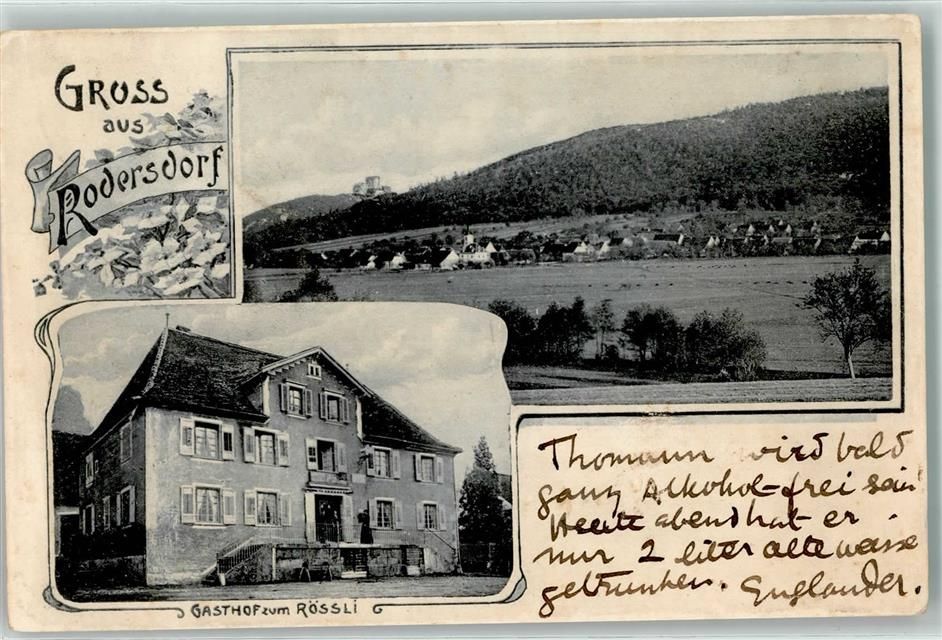 GRUSS
AUS
Rodersdorf
GASTHOF zum RÖSSLI
Thomann wird bald
ganz Alkohol-frei sein
Heute abend hat er
nur 2 liter alte
getrunken. Englander.